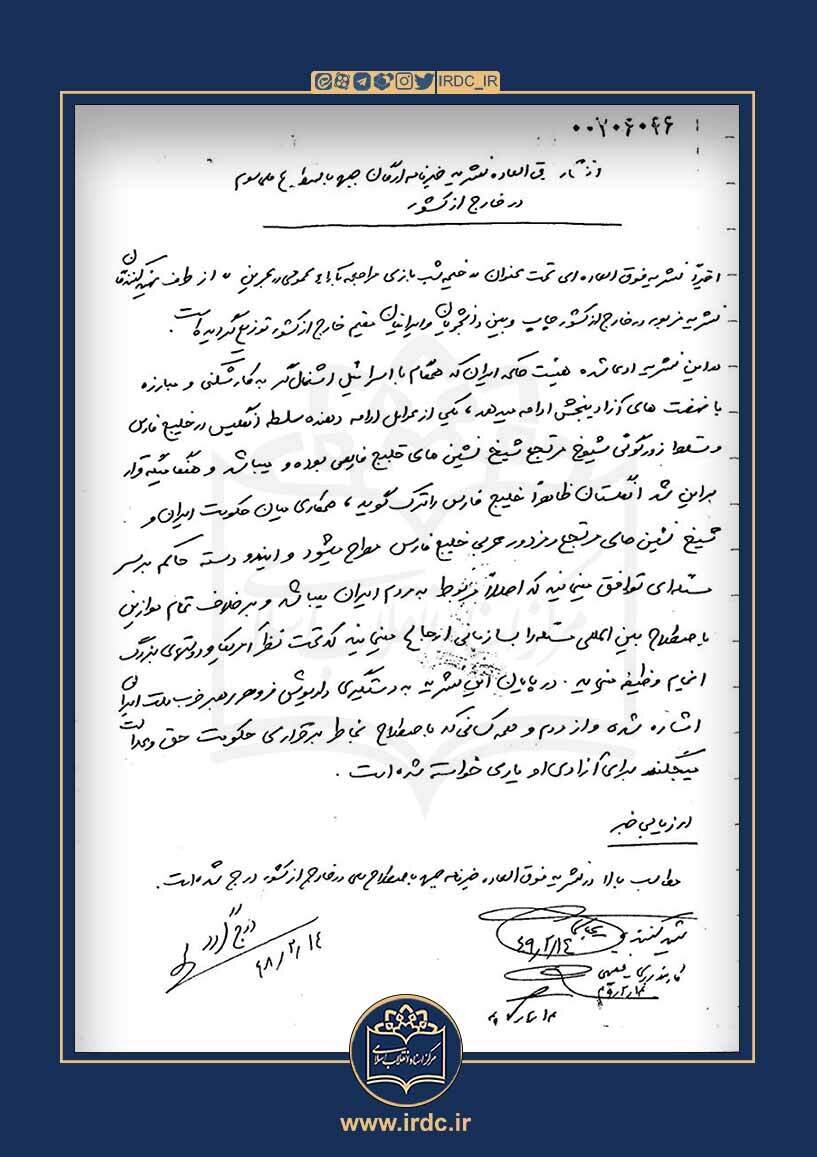 IRDC_IR
۰۰۲۰۶۰۴۶
انتشار فوق العاده نشریه خبرنامه ارگان جبهه باصطلاح ملی سوم
در خارج از کشور
اخیراً نشریه فوق العاده ای تحت عنوان « خیمه شب بازی مراجعه به آراء عمومی در بحرین » از طرف تهیه کنندگان
نشریه مزبور در خارج از کشور چاپ و بین دانشجویان و ایرانیان مقیم خارج از کشور توزیع گردیده است.
در این نشریه ادعا شده هیئت حاکمه ایران که همگام با اسرائیل اشغالگر به کارشکنی و مبارزه
با نهضت های آزادیبخش ادامه میدهد، یکی از عوامل ادامه دهنده سلطه انگلیس در خلیج فارس
و تسلط و زورگوئی شیوخ مرتجع شیخ نشین های خلیج فارس بوده و میباشد و هنگامیکه قرار
براین شد انگلستان ظاهراً خلیج فارس را ترک گوید، همکاری میان حکومت ایران و
شیخ نشین های مرتجع و مزدور عربی خلیج فارس مطرح میشود و ایندو دسته حاکم بر سر
مسئله ای توافق مینمایند که اصلاً مربوط به مردم ایران میباشد و برخلاف تمام موازین
باصطلاح بین المللی مسئله را بسازمانی ارجاع مینمایند که تحت نظر امریکا و دولتهای بزرگ
انجام وظیفه مینماید. در پایان این نشریه به دستگیری داریوش فروهر رهبر حزب ملت ایران
اشاره شده و از مردم و همه کسانی که باصطلاح بخاطر برقراری حکومت حق و عدالت
میجنگند برای آزادی او یاری خواسته شده است.
ارزیابی خبر
مطالب بالا در نشریه فوق العاده خبرنامه جبهه باصطلاح ملی در خارج از کشور درج شده است.
تهیه کننده
۴۹/۲/۱۴
درج گردد
۴۸/۲/۱۴
مرکز اسناد انقلاب اسلامی
www.irdc.ir